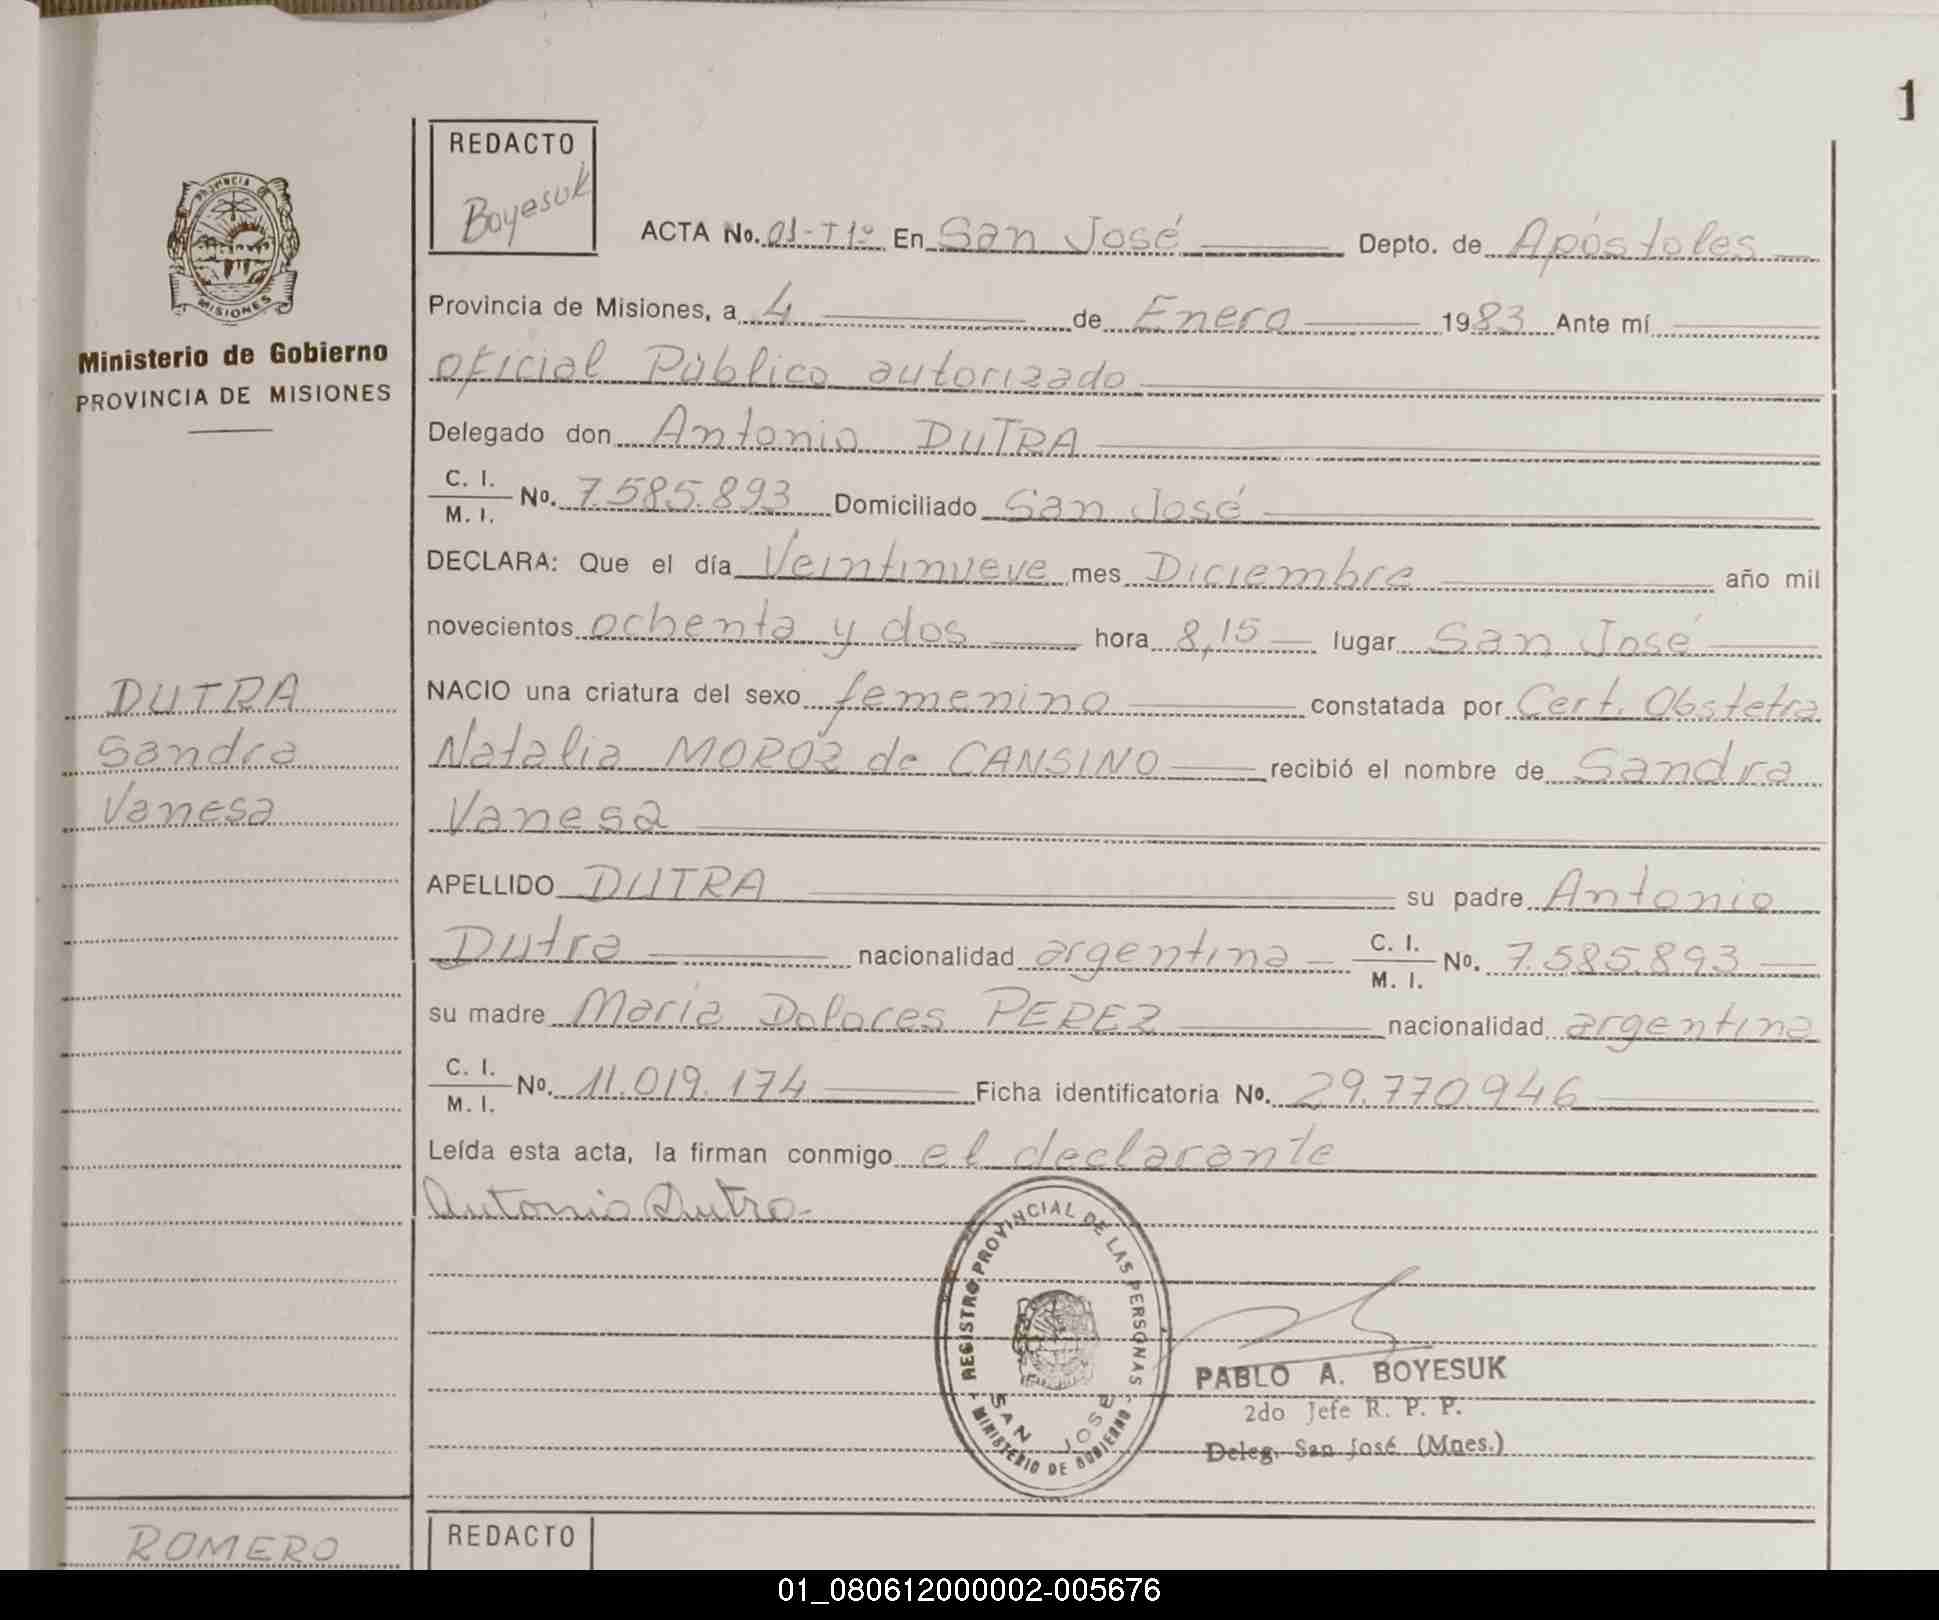 1
REDACTO
Boyesuk
PROVINCIA DE
MISIONES
Ministerio de Gobierno
PROVINCIA DE MISIONES
ACTA No. 01-T1º En San José Depto. de Apóstoles
Provincia de Misiones, a 4 de Enero 1983 Ante mí
Oficial Público autorizado
Delegado don Antonio DUTRA
C. I.
M. I. No. 7.585.893 Domiciliado San José
DECLARA: Que el día Veintinueve mes Diciembre año mil
novecientos ochenta y dos hora 8,15 lugar San José
NACIO una criatura del sexo femenino constatada por Cert. Obstetra
Natalia MOROZ de CANSINO recibió el nombre de Sandra
Vanesa
DUTRA
Sandra
Vanesa
APELLIDO DUTRA su padre Antonio
Dutra nacionalidad argentina C. I.
M. I. No. 7.585.893
su madre María Dolores PEREZ nacionalidad argentina
C. I.
M. I. No. 11.019.174 Ficha identificatoria No. 29.770.946
Leída esta acta, la firman conmigo el declarante
Antonio Dutra
REGISTRO PROVINCIAL DE LAS PERSONAS
SAN JOSE
MINISTERIO DE GOBIERNO
PABLO A. BOYESUK
2do Jefe R. P. P.
Deleg. San José (Mnes.)
ROMERO
REDACTO
01_080612000002-005676